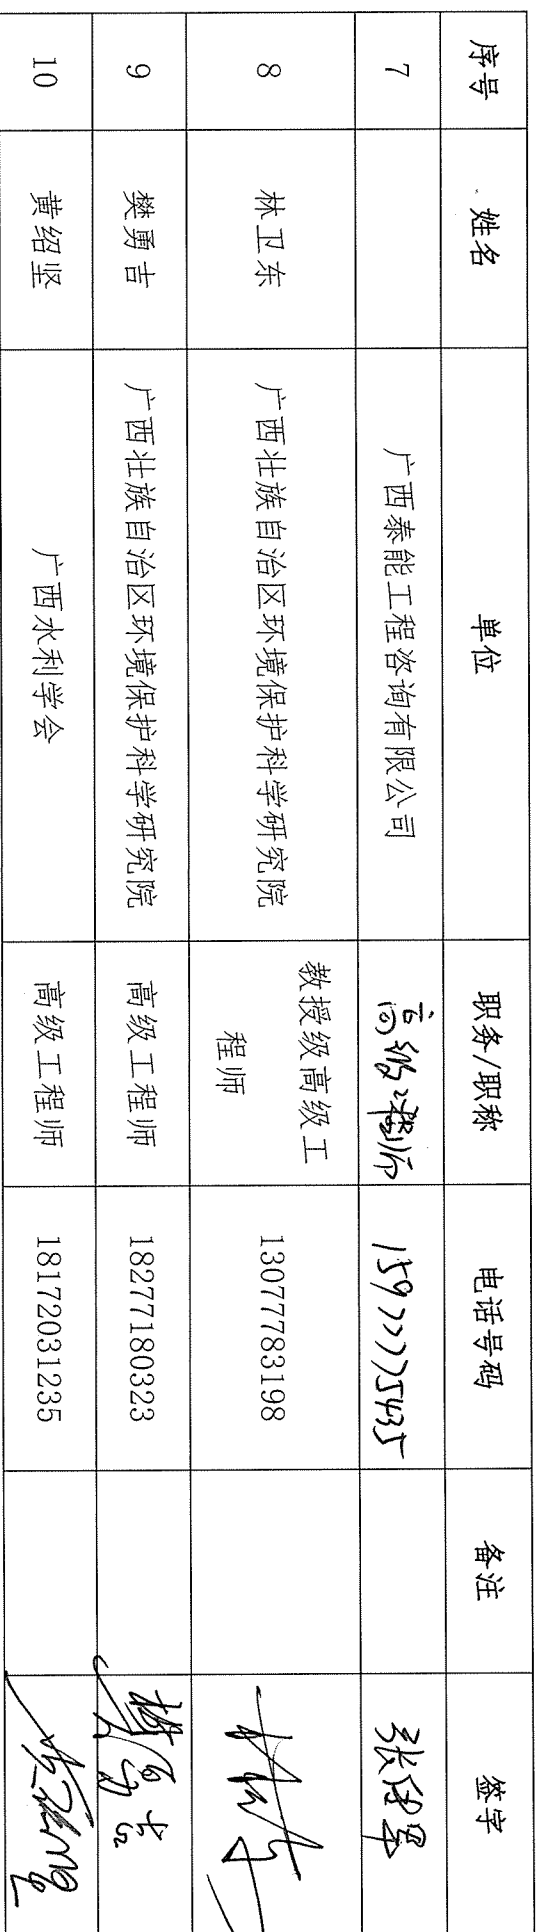 序号 姓名 单位 职务/职称 电话号码 备注 签字
7 广西泰能工程咨询有限公司 高级工程师 15977775435
8 林卫东 广西壮族自治区环境保护科学研究院 教授级高级工 13077783198 林卫东
程师
9 樊勇吉 广西壮族自治区环境保护科学研究院 高级工程师 18277180323 樊勇吉
10 黄绍坚 广西水利学会 高级工程师 18172031235 黄绍坚